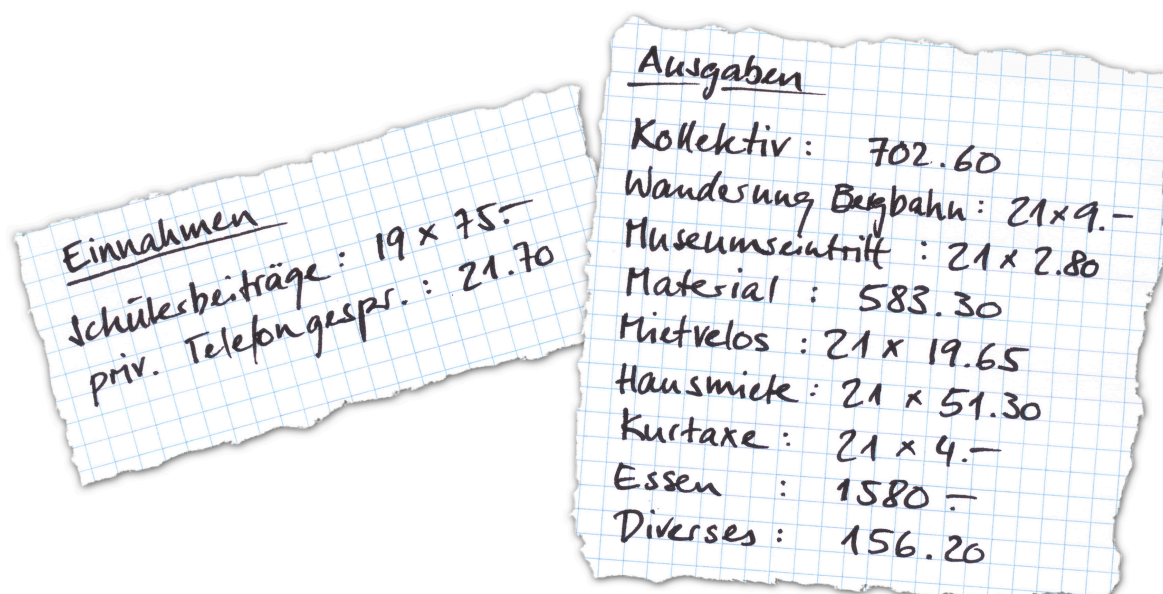 Einnahmen
Schülerbeiträge: 19 × 75.–
priv. Telefongespr.: 21.70
Ausgaben
Kollektiv: 702.60
Wanderung Bergbahn: 21×9.–
Museumseintritt: 21 × 2.80
Material: 583.30
Mietvelos: 21 × 19.65
Hausmiete: 21 × 51.30
Kurtaxe: 21 × 4.–
Essen: 1580.–
Diverses: 156.20